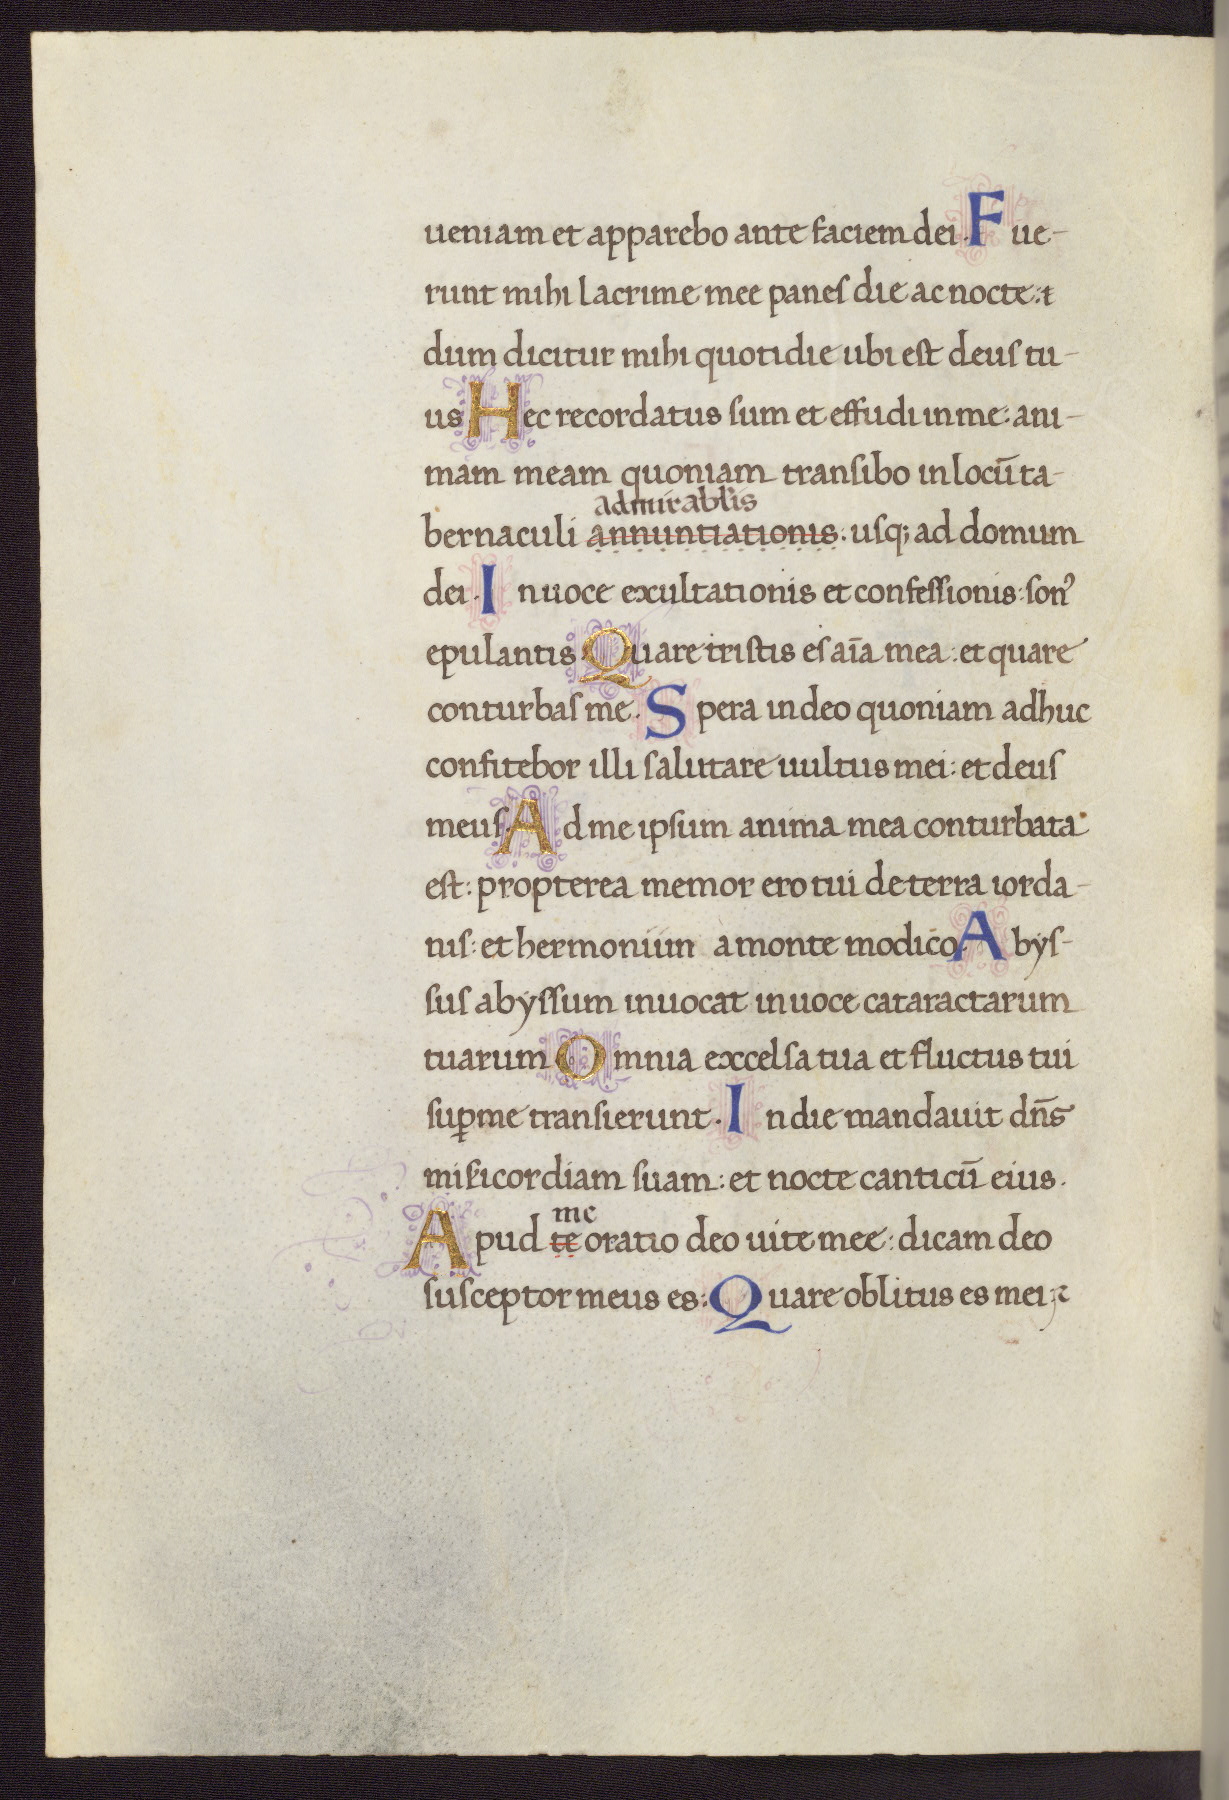 ueniam et apparebo ante faciem dei. Fue-
runt mihi lacrime mee panes die ac nocte: &
dum dicitur mihi quotidie ubi est deus tu-
us Hec recordatus sum et effudi in me: ani-
mam meam quoniam transibo in locū ta-
admirabĺis
bernaculi annuntiationis: usq; ad domum
dei. In uoce exultationis et confessionis: son᾿
epulantis Quare tristis es aīa mea: et quare
conturbas me. Spera in deo quoniam adhuc
confitebor illi salutare uultus mei: et deus
meus. Ad me ipsum anima mea conturbata
est: propterea memor ero tui de terra iorda-
nis: et hermoniim a monte modico. Abys-
sus abyssum inuocat in uoce cataractarum
tuarum Omnia excelsa tua et fluctus tui
suꝑ me transierunt. In die mandauit dn̄s
miśicordiam suam: et nocte canticū eius.
me
Apud te oratio deo uite mee: dicam deo
susceptor meus es: Quare oblitus es mei